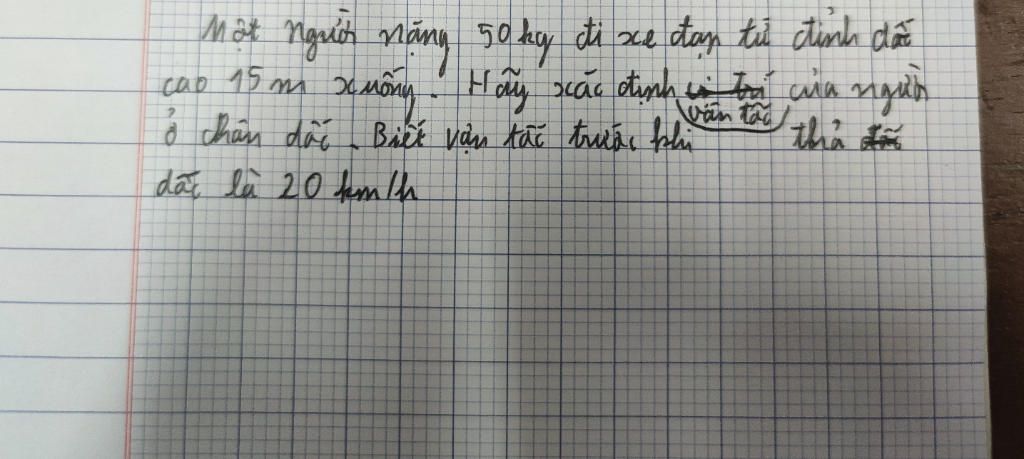 Một người nặng 50kg đi xe đạp từ đỉnh dốc
cao 15m xuống. Hãy xác định vị trí vận tốc của người
ở chân dốc. Biết vận tốc trước khi thả dốc
dốc là 20 km/h